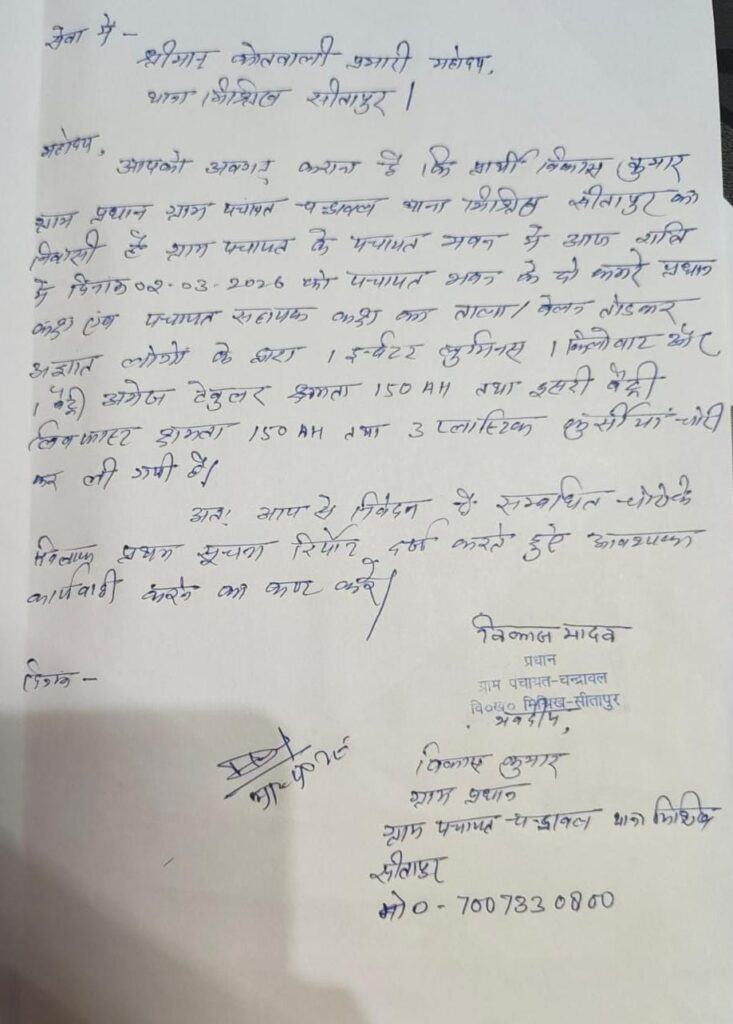 सेवा में -
श्रीमान् कोतवाली प्रभारी महोदय,
थाना मिश्रिख सीतापुर।
महोदय,
आपको अवगत् कराना है कि प्रार्थी विकास कुमार
ग्राम प्रधान ग्राम पंचायत चन्द्रावल थाना मिश्रिख सीतापुर का
निवासी है ग्राम पंचायत के पंचायत भवन में आज रात्रि
में दिनांक 02-03-2026 को पंचायत भवन के दो कमरे प्रधान
कक्ष एंव पंचायत सहायक कक्ष का ताला / बेलन तोडकर
अज्ञात लोगो के द्वारा 1 इन्वर्टर लुमिनस 1 किलोवाट और
1 बैट्री अमेज टेबुलर क्षमता 150 AH तथा दूसरी बैट्री
लिवफास्ट क्षमता 150 AH तथा 3 प्लास्टिक कुर्सीयां चोरी
कर ली गयी है।
अतः आप से निवेदन है सम्बन्धित चोरो के
खिलाफ प्रथम सूचना रिपोर्ट दर्ज करते हुऐ आवश्यक
कार्यवाही करने का कष्ट करें।
दिनांक -
विकास यादव
प्रधान
ग्राम पंचायत-चन्द्रावल
वि०ख० मिश्रिख-सीतापुर
भवदीय,
विकास कुमार
ग्राम प्रधान
ग्राम पंचायत चन्द्रावल थाना मिश्रिख
सीतापुर
मो0 - 7007330800